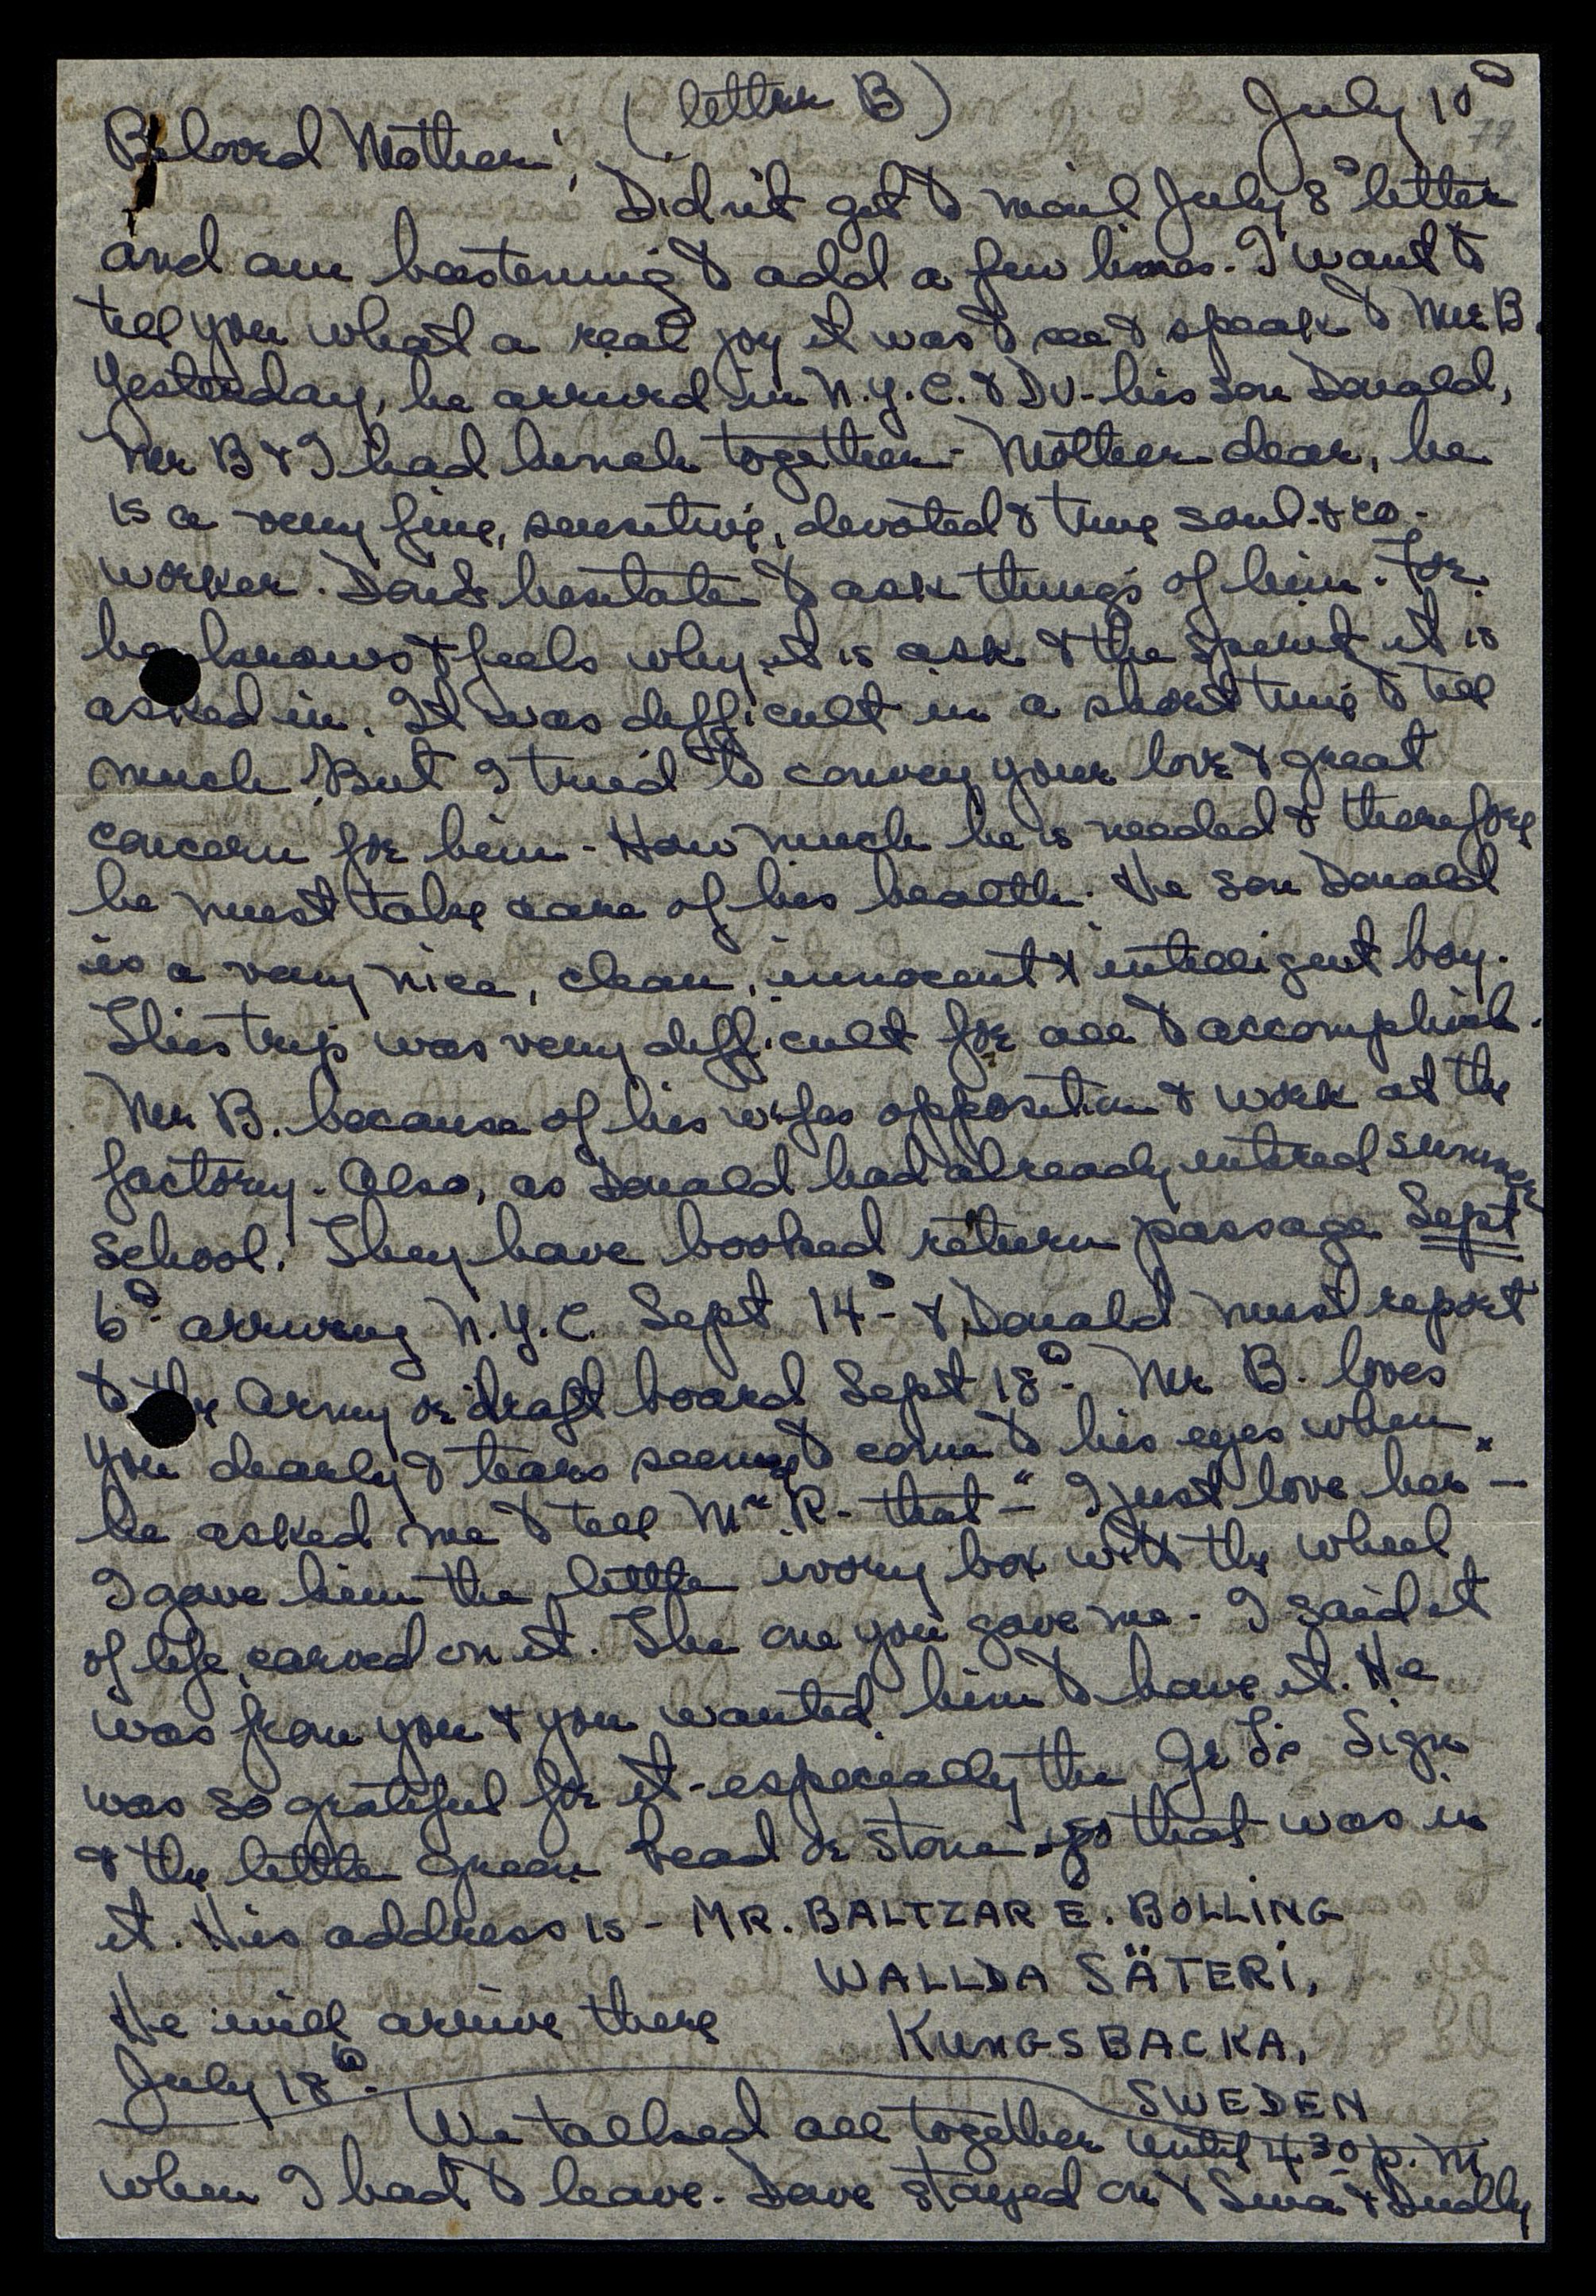 (letter B) July 10
77
Beloved Mother!,
Didn't get to mail July 8 letter
and am hastening to add a few lines. I want to
tell you what a real joy it was to see & speak to Mr B.
Yesterday, he arrived in N.Y.C. & DV - his son Donald,
Mr B & I had lunch together - Mother dear, he
is a very fine, sensitive, devoted & true soul - & co-
worker. Don't hesitate to ask things of him. For
he knows & feels why it is ask & the spirit it is
asked in. It was difficult in a short time to tell
much. But I tried to convey your love & great
concern for him - How much he is needed & therefore
he must take care of his health. He son Donald
is a very nice, clean, innocent & intelligent boy.
This trip was very difficult for all to accomplish.
Mr B. because of his wifes opposition & work at the
factory. Also, as Donald had already entered summer
school. They have booked return passage Sept
6 - arriving N.Y.C. Sept 14 - & Donald must report
to the Army or draft board Sept 18 - Mr B. loves
you dearly & tears seemed to come to his eyes when
he asked me to tell Mme R - that - "I just love her" -
I gave him the little ivory box with the wheel
of life carved on it. The one you gave me - I said it
was from you & you wanted him to have it. He
was so grateful for it - especially the Sign
& the little green bead or stone that was in
it. His address is - MR. BALTZAR E. BOLLING
WALLDA SÄTERI,
He will arrive there KUNGSBACKA,
July 18. SWEDEN
We talked all together until 4 30 p.m
when I had to leave. Dave stayed on & Sina & Dudley